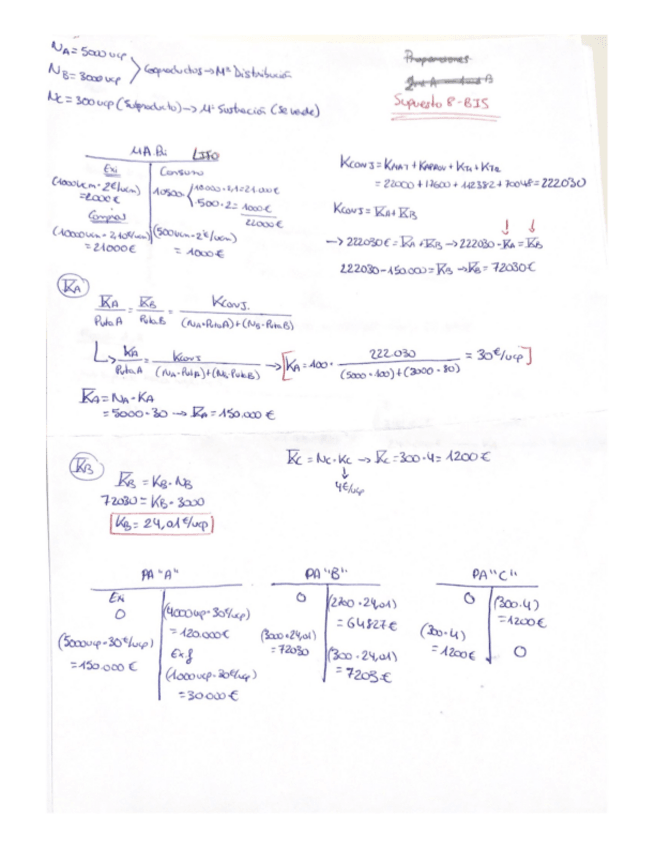 NA = 5000 ucp
NB = 3000 ucp
Coproductos → Mº Distribución
NC = 300 ucp (Subproducto) → Mº Sustración (Se vende)
Supuesto 8-BIS
MA Bi LIFO
Exi
(1000 ucm · 2€/ucm)
= 2000€
Compras
(10000 ucm · 2,10€/ucm)
= 21000€
Consumo
10500
10.000 · 2,1 = 21.000€
500 · 2 = 1000€
22000€
(500 ucm · 2€/ucm)
= 1000€
KCONJ = KMAT + KAPROV + KT1 + KT2
= 22000 + 17600 + 112382 + 70048 = 222030
KCONJ = KA + KB
→ 222030€ = KA + KB → 222030 - KA = KB
222030 - 150.000 = KB → KB = 72030€
KA
KA / Pvta.A = KB / Pvta.B = KCONJ. / (NA · Pvta.A) + (NB · Pvta.B)
KA / Pvta.A = KCONJ / (NA · Pvta.A) + (NB · Pvta.B) → [KA = 100 · 222.030 / (5000 · 100) + (3000 · 80) = 30€/ucp]
KA = NA · KA
= 5000 · 30 → KA = 150.000€
KB
KB = KB · NB
72030 = KB · 3000
KB = 24,01€/ucp
KC = NC · KC → KC = 300 · 4 = 1200€
4€/ucp
PA "A"
Exi
0
(5000 ucp · 30€/ucp)
= 150.000€
(4000 ucp · 30€/ucp)
= 120.000€
Ex.f
(1000 ucp · 30€/ucp)
= 30.000€
PA "B"
0
(3000 · 24,01)
= 72030
(2700 · 24,01)
= 64827€
(300 · 24,01)
= 7203€
PA "C"
0
(300 · 4)
= 1200€
(300 · 4)
= 1200€
0